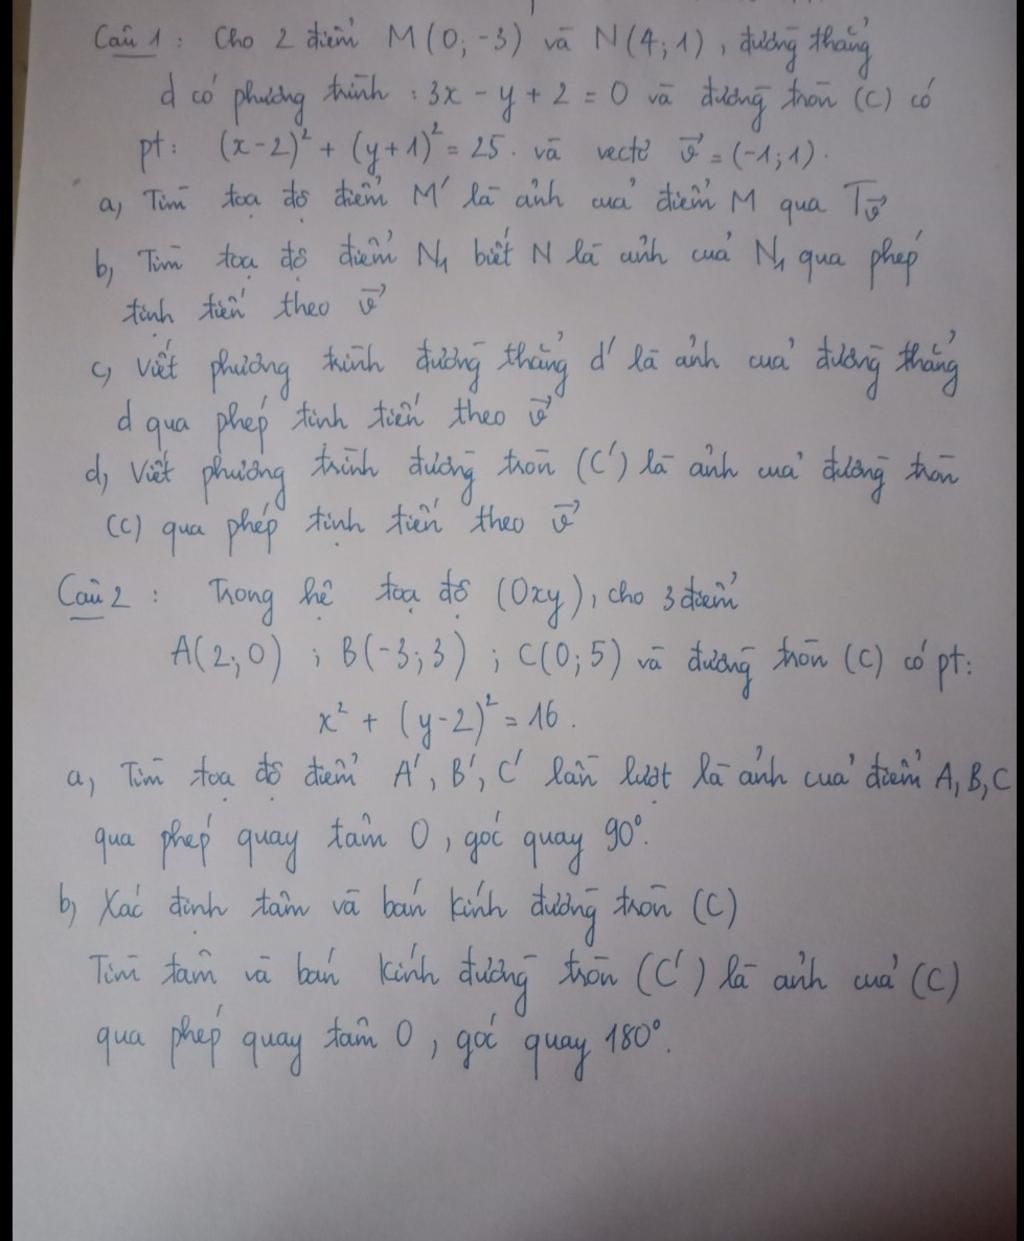 Câu 1 : Cho 2 điểm M(0; -3) và N(4; 1), đường thẳng
d có phương trình : 3x - y + 2 = 0 và đường tròn (C) có
pt: (x-2)² + (y+1)² = 25. và vectơ v⃗ = (-1; 1).
a, Tìm toạ độ điểm M' là ảnh của điểm M qua Tv⃗
b, Tìm toạ độ điểm N₁ biết N là ảnh của N₁ qua phép
tịnh tiến theo v⃗
c, Viết phương trình đường thẳng d' là ảnh của đường thẳng
d qua phép tịnh tiến theo v⃗
d, Viết phương trình đường tròn (C') là ảnh của đường tròn
(C) qua phép tịnh tiến theo v⃗
Câu 2 : Trong hệ toạ độ (Oxy), cho 3 điểm
A(2; 0) ; B(-3; 3) ; C(0; 5) và đường tròn (C) có pt:
x² + (y-2)² = 16.
a, Tìm toạ độ điểm A', B', C' lần lượt là ảnh của điểm A, B, C
qua phép quay tâm O, góc quay 90°.
b, Xác định tâm và bán kính đường tròn (C)
Tìm tâm và bán kính đường tròn (C') là ảnh của (C)
qua phép quay tâm O, góc quay 180°.